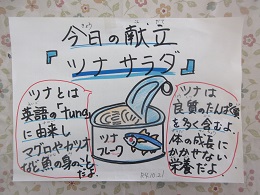 今日の献立
きょう こんだて
「ツナサラダ」
ツナとは
英語の「tuna」
に由来し
マグロやカツオ
など魚の身のこと
だよ。
ツナ
フレーク
ツナは
良質のたんぱく質
を多く含むよ。
体の成長に
かかせない
栄養だよ。
R4.10.21